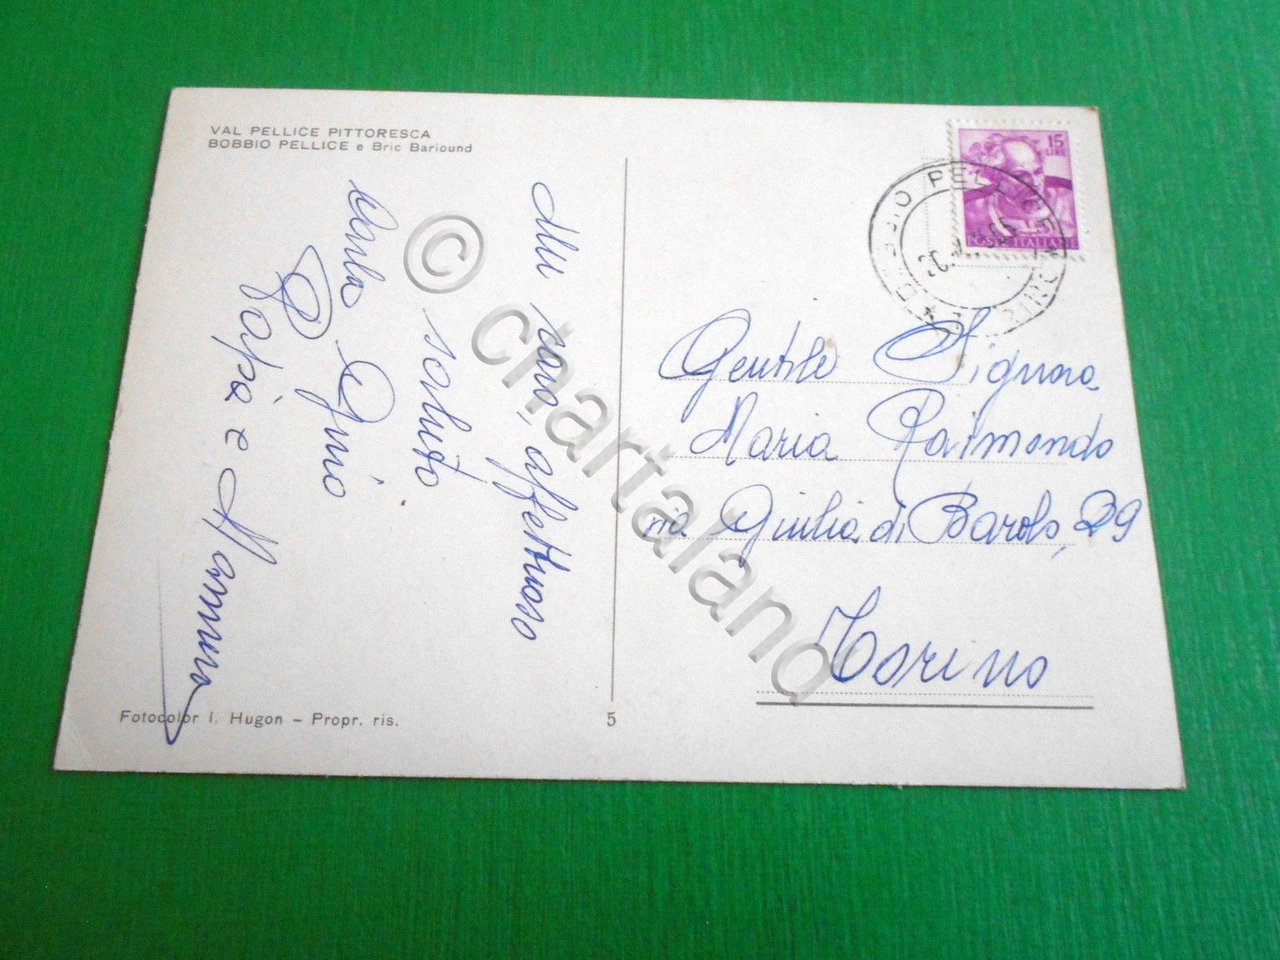 VAL PELLICE PITTORESCA
BOBBIO PELLICE e Bric Bariound
Un caro, affettuoso
saluto
Carla Gino
Papà e Mamma
Gentile Signora
Maria Raimondo
via Giulia di Barolo, 29
Torino
15
LIRE
POSTE ITALIANE
BOBBIO PELLICE
TORINO
Fotocolor I. Hugon – Propr. ris.
5
© chartaland